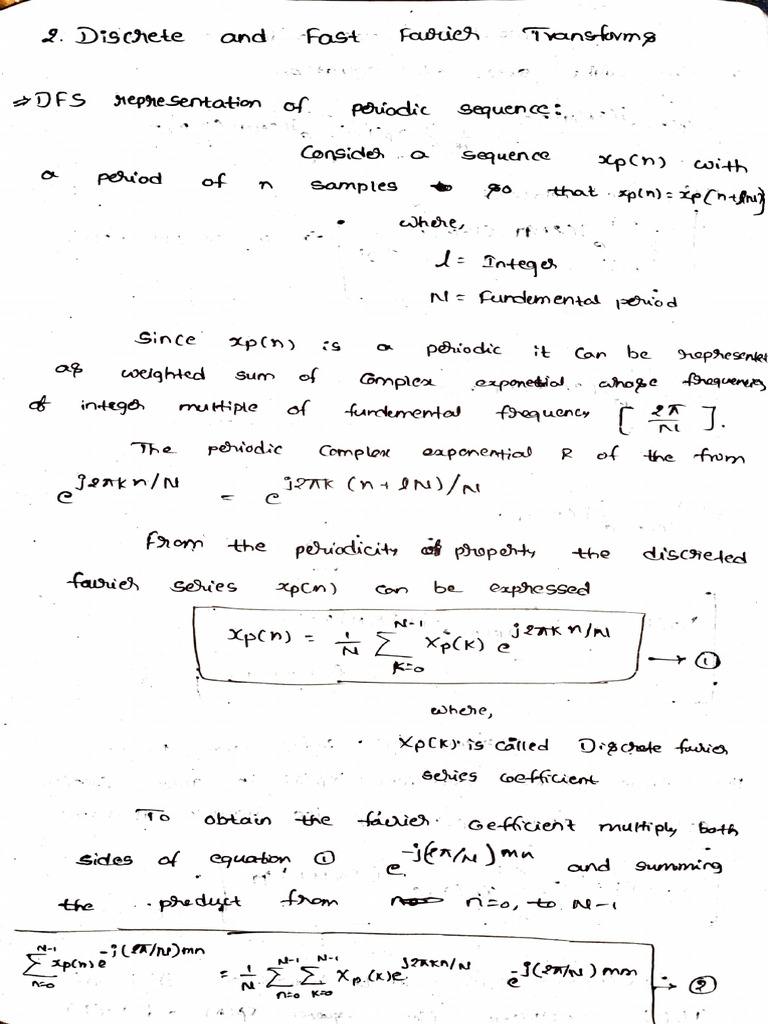 2. Discrete and Fast Fourier Transforms
⇒ DFS representation of periodic sequence:
Consider a sequence xp(n) with
a period of n samples so that xp(n) = xp(n+lN)
where,
l = Integer
N = Fundemental period
Since xp(n) is a periodic it can be represented
as weighted sum of Complex exponetial whose frequencies
of integer multiple of fundemental frequency [2π/N].
The periodic Complex exponential R of the from
e^{j2πkn/N} = e^{j2πk(n+lN)/N}
From the periodicity of property the discreted
fourier series xp(n) can be expressed
xp(n) = 1/N ∑_{K=0}^{N-1} Xp(K) e^{j2πkn/N} → ①
where,
Xp(K) is called Discrete fourier
series coefficient
To obtain the fourier Coefficient multiply both
sides of equation ① e^{-j(2π/N)mn} and summing
the product from n=0, to N-1
∑_{n=0}^{N-1} xp(n) e^{-j(2π/N)mn} = 1/N ∑_{n=0}^{N-1} ∑_{K=0}^{N-1} Xp(K) e^{j2πkn/N} e^{-j(2π/N)mn} → ②